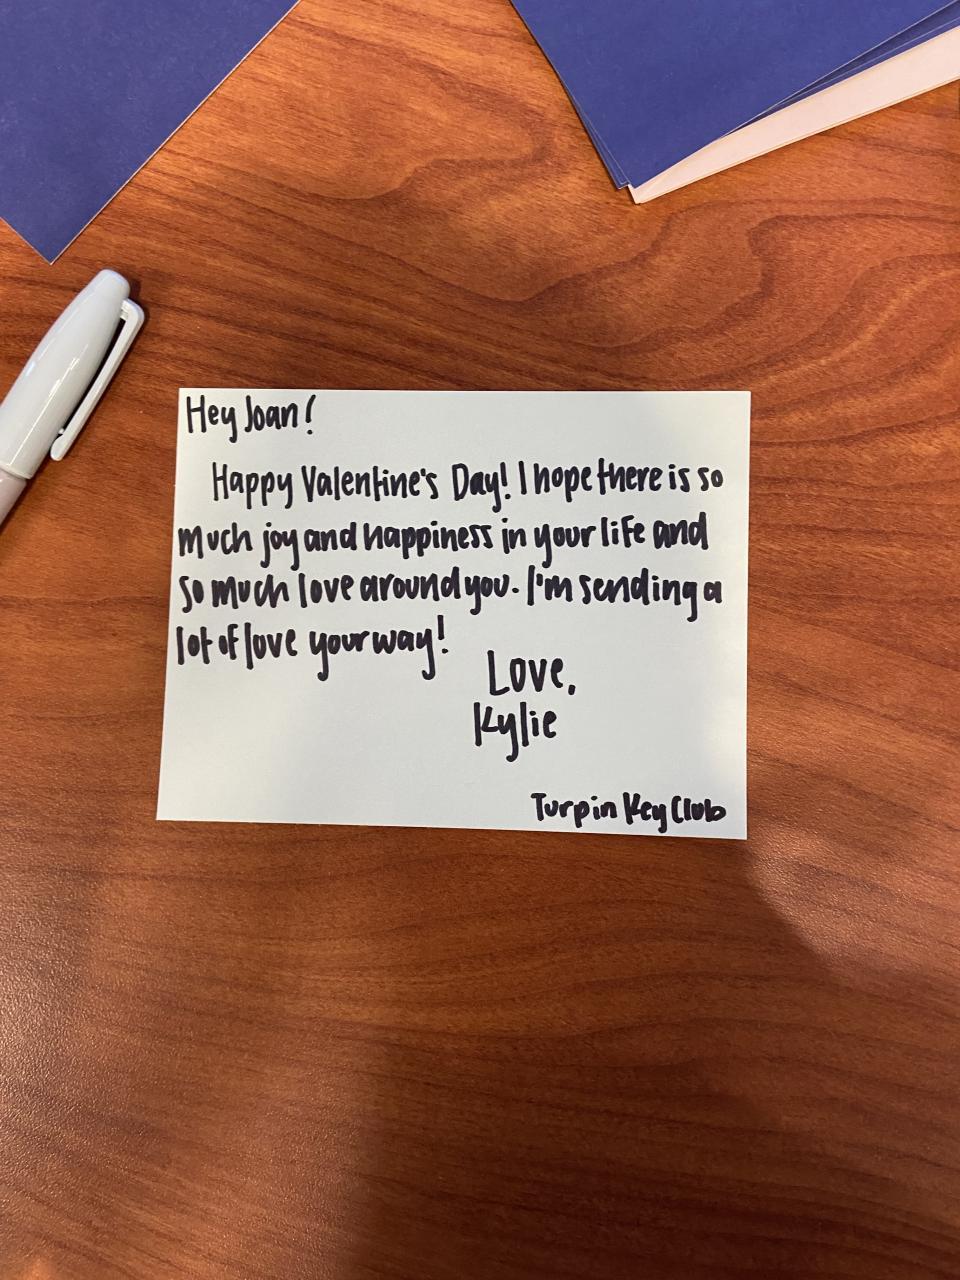 Hey Joan!
Happy Valentine's Day! I hope there is so
much joy and happiness in your life and
so much love around you. I'm sending a
lot of love your way!
Love,
Kylie
Turpin Key Club